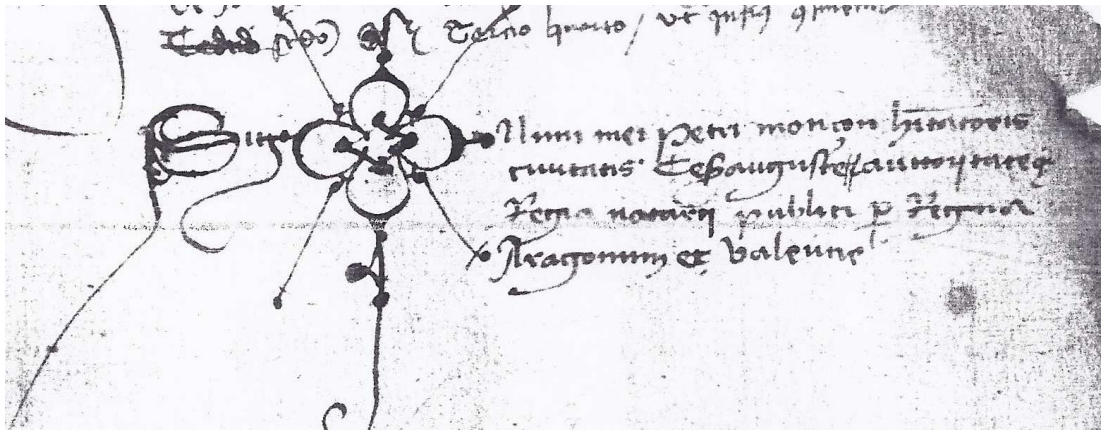 Tercio quarto / ut
Sig num mei Petri monçon hitatoris
civitatis Cesarauguste auctoritateq
Regia notarii publici p Regna
Aragonum et Valentie